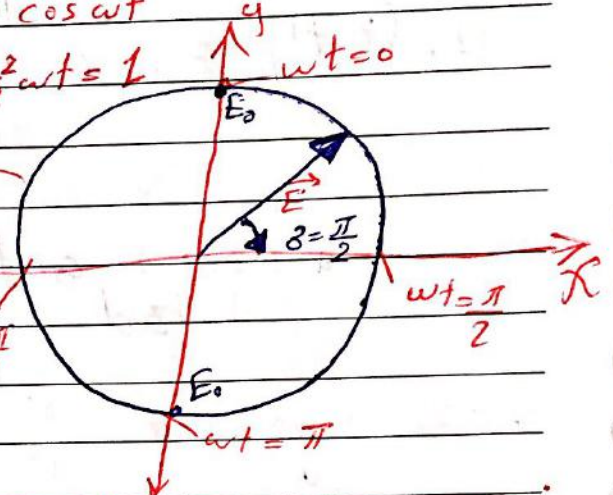 cos wt
y
² wt = 1
wt = 0
E₀
E⃗
δ = π/2
x
wt = π/2
E₀
wt = π